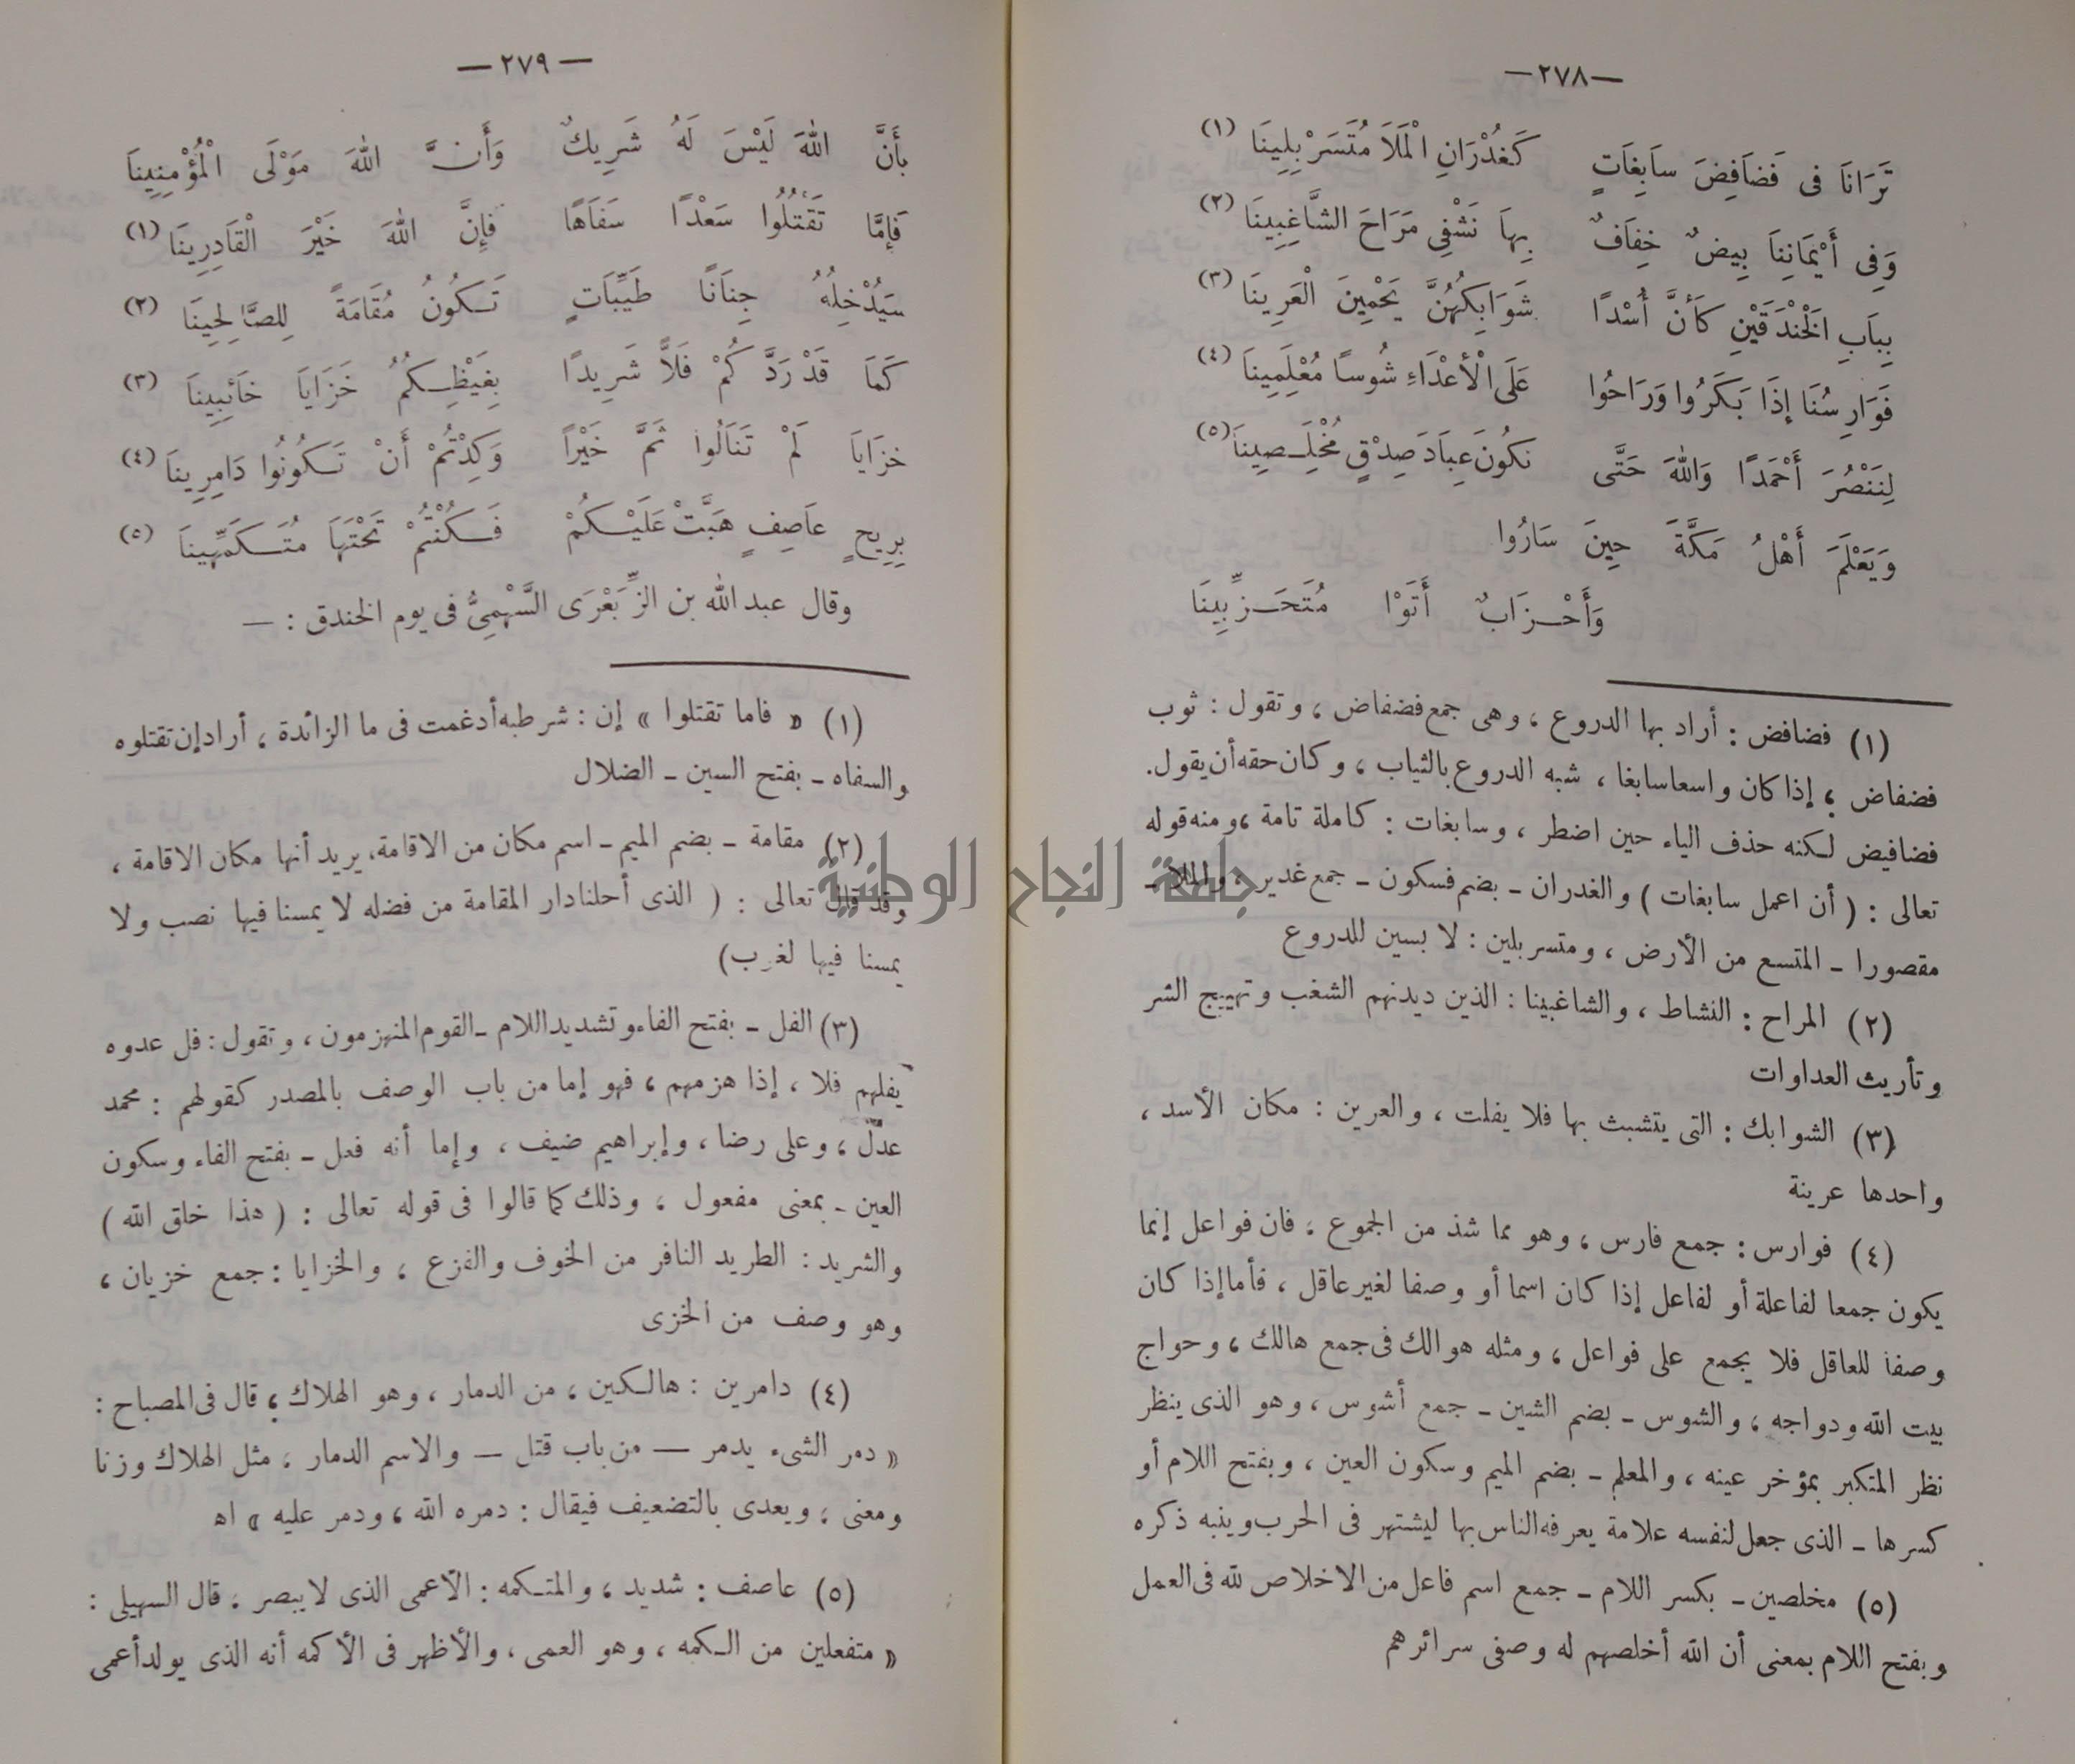 —٢٧٨—
تَرَانَا فى فَضَافِضَ سَابِغَاتٍ كَغُدْرَانِ الْمَلَا مُتَسَرْبِلِينَا (١)
وَفِى أَيْمَانِنَا بِيضٌ خِفَافٌ بِهَا نَشْفِى مَرَاحَ الشَّاغِبِينَا (٢)
بِبَابِ الْخَنْدَقَيْنِ كَأَنَّ أُسْدًا شَوَابِكُهُنَّ يَحْمِينَ الْعَرِينَا (٣)
فَوَارِسُنَا إِذَا بَكَرُوا وَرَاحُوا عَلَى الْأعْدَاءِ شُوسًا مُعْلَمِينَا (٤)
لِنَنْصُرَ أَحْمَدًا وَاللهَ حَتَّى نَكُونَ عِبَادَ صِدْقٍ مُخْلَصِينَا (٥)
وَيَعْلَمَ أَهْلُ مَكَّةَ حِينَ سَارُوا
وَأَحْزَابٌ أَتَوْا مُتَحَزِّبِينَا
(١) فضافض : أراد بها الدروع ، وهى جمع فضفاض ، وتقول : ثوب
فضفاض ، إذا كان واسعا سابغا ، شبه الدروع بالثياب ، وكان حقه أن يقول.
فضافيض لكنه حذف الياء حين اضطر ، وسابغات : كاملة تامة ، ومنه قوله
تعالى : ( أن اعمل سابغات ) والغدران ــ بضم فسكون ــ جمع غدير ، والملا ــ
مقصورا ــ المتسع من الأرض ، ومتسربلين : لابسين للدروع
(٢) المراح : النشاط ، والشاغبينا : الذين ديدنهم الشغب وتهييج الشر
وتأريث العداوات
(٣) الشوابك : التى يتشبث بها فلا يفلت ، والعرين : مكان الأسد ،
واحدها عرينة
(٤) فوارس : جمع فارس ، وهو مما شذ من الجموع ، فان فواعل إنما
يكون جمعا لفاعلة أو لفاعل إذا كان اسما أو وصفا لغير عاقل ، فأما إذا كان
وصفا للعاقل فلا يجمع على فواعل ، ومثله هوالك فى جمع هالك ، وحواج
بيت الله ودواجه ، والشوس ــ بضم الشين ــ جمع أشوس ، وهو الذى ينظر
نظر المتكبر بمؤخر عينه ، والمعلم ــ بضم الميم وسكون العين ، وبفتح اللام أو
كسرها ــ الذى جعل لنفسه علامة يعرفه الناس بها ليشتهر فى الحرب وينبه ذكره
(٥) مخلصين ــ بكسر اللام ــ جمع اسم فاعل من الاخلاص لله فى العمل
وبفتح اللام بمعنى أن الله أخلصهم له وصفى سرائرهم
— ٢٧٩ —
بِأَنَّ اللهَ لَيْسَ لَهُ شَرِيكٌ وَأَنَّ اللهَ مَوْلَى الْمُؤْمِنِينَا
فَإِمَّا تَقْتُلُوا سَعْدًا سَفَاهًا فَإِنَّ اللهَ خَيْرَ الْقَادِرِينَا (١)
سَيُدْخِلُهُ جِنَانًا طَيِّبَاتٍ تَكُونُ مُقَامَةً لِلصَّالِحِينَا (٢)
كَمَا قَدْ رَدَّكُمْ فَلًّا شَرِيدًا بِغَيْظِكُمُ خَزَايَا خَائبِينَا (٣)
خزَايَا لَمْ تَنَالُوا ثَمَّ خَيْرًا وَكِدْتُمْ أَنْ تَكُونُوا دَامِرِينَا (٤)
بِرِيحٍ عاَصِفٍ هَبَّتْ عَلَيْكُمْ فَكُنْتُمْ تَحْتَهَا مُتَكَمِّهِينَا (٥)
وقال عبد الله بن الزِّبَعْرَى السَّهْمِىُّ فى يوم الخندق : —
(١) « فاما تقتلوا » إن : شرطيه أدغمت فى ما الزائدة ، أراد إن تقتلوه
والسفاه ــ بفتح السين ــ الضلال
(٢) مقامة ــ بضم الميم ــ اسم مكان من الاقامة، يريد أنها مكان الاقامة ،
وقد قال تعالى : ( الذى أحلنا دار المقامة من فضله لا يمسنا فيها نصب ولا
يمسنا فيها لغوب)
(٣) الفل ــ بفتح الفاء وتشديد اللام ــ القوم المنهزمون ، وتقول : فل عدوه
يفلهم فلا ، إذا هزمهم ، فهو إما من باب الوصف بالمصدر كقولهم : محمد
عدل ، وعلى رضا ، وإبراهيم ضيف ، وإما أنه فعل ــ بفتح الفاء وسكون
العين ــ بمعنى مفعول ، وذلك كما قالوا فى قوله تعالى : ( هذا خلق الله )
والشريد : الطريد النافر من الخوف والفزع ، والخزايا : جمع خزيان ،
وهو وصف من الخزى
(٤) دامرين : هالكين ، من الدمار ، وهو الهلاك ، قال فى المصباح :
« دمر الشىء يدمر — من باب قتل — والاسم الدمار ، مثل الهلاك وزنا
ومعنى ، ويعدى بالتضعيف فيقال : دمره الله ، ودمر عليه » اه
(٥) عاصف : شديد ، والمتكمه : الأعمى الذى لا يبصر ، قال السهيلى :
« متفعلين من الكمه ، وهو العمى ، والأظهر فى الأكمه أنه الذى يولد أعمى
جامعة النجاح الوطنية